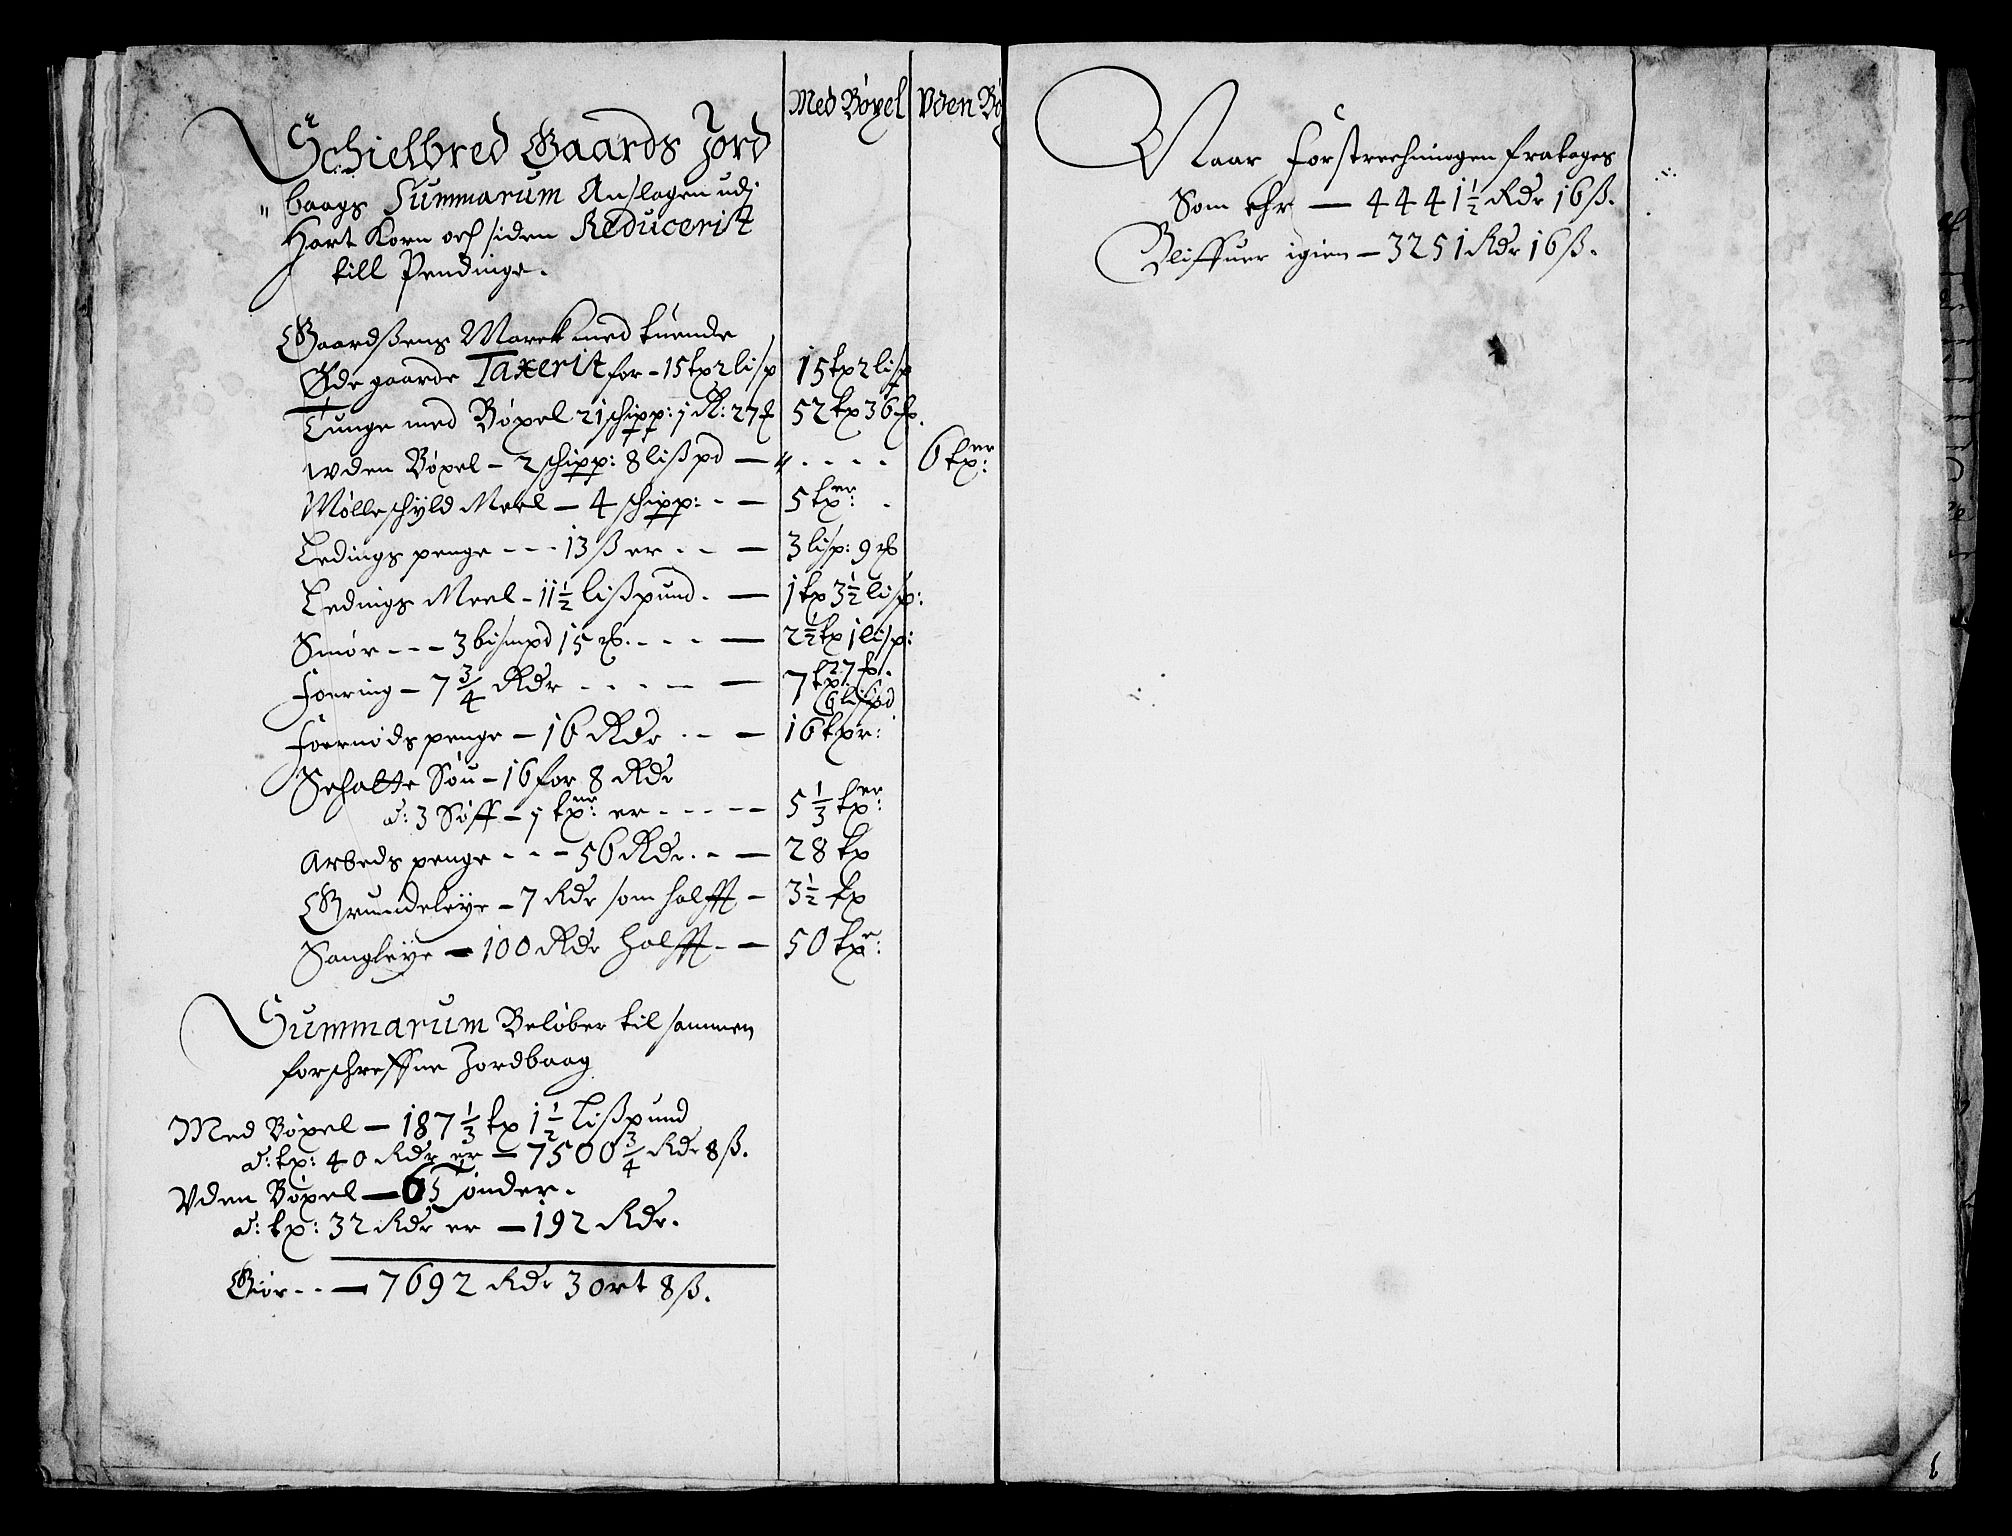 Med Böxel Vden Bö
Schielbred Gaards Jord
baags Summarum Anslagen udj
Hart Korn och siden Reducerit
till Pendinge.
Gaardßens Marck med tuende
Øde gaarde Taxerit for - 15 tp 2 lisp 15 tp 2 lisp
Tunge med Böxel 21 schipp: j R: 27 ℔ 52 tp 36 ℔.
wden Böxel - 2 schipp: 8 lißpd — 〃 . - - - 6 tper:
Mølleschyld Meel — 4 schipp: - — 5 tper: .
Ledings penge - - - 13 ß er - - — 3 lisp: 9 ℔
Ledings Meel - 11½ lißpund. — 1 tp 3½ lisp:
Smör - - - 3 bismpd 15 ℔. - - - — 2½ tp 1 lisp:
27 ℔.
Foering - 7¾ Rdr - - - - — 7 tp: 6 lispd
Foernöds penge — 16 Rdr . - — 16 tpr:
Schatte Söu - 16 for 8 Rdr
a: 3 Söff — j tper: er - - - - — 5⅓ tper:
Arbeds penge - - - 56 Rdr. - — 28 tp
Grundeleye — 7 Rdr som halfft - 3½ tp
Saugleye — 100 Rdr halfft - — 50 tpr:
Summarum Belöber til sammen
forschreffne Jordbaag
Med Böxel — 187⅓ tp 1½ Lißpund
a: tp: 40 Rdr er — 7500¾ Rdr 8 ß.
Vden Böxel — 6 Tønder.
a: tp: 32 Rdr er — 192 Rdr.
Giör - - — 7692 Rdr 3 ort 8 ß.
Naar Forstrechningen fratages
Som ehr — 4441½ Rdr 16 ß.
Bliffuer igien — 3251 Rdr 16 ß.